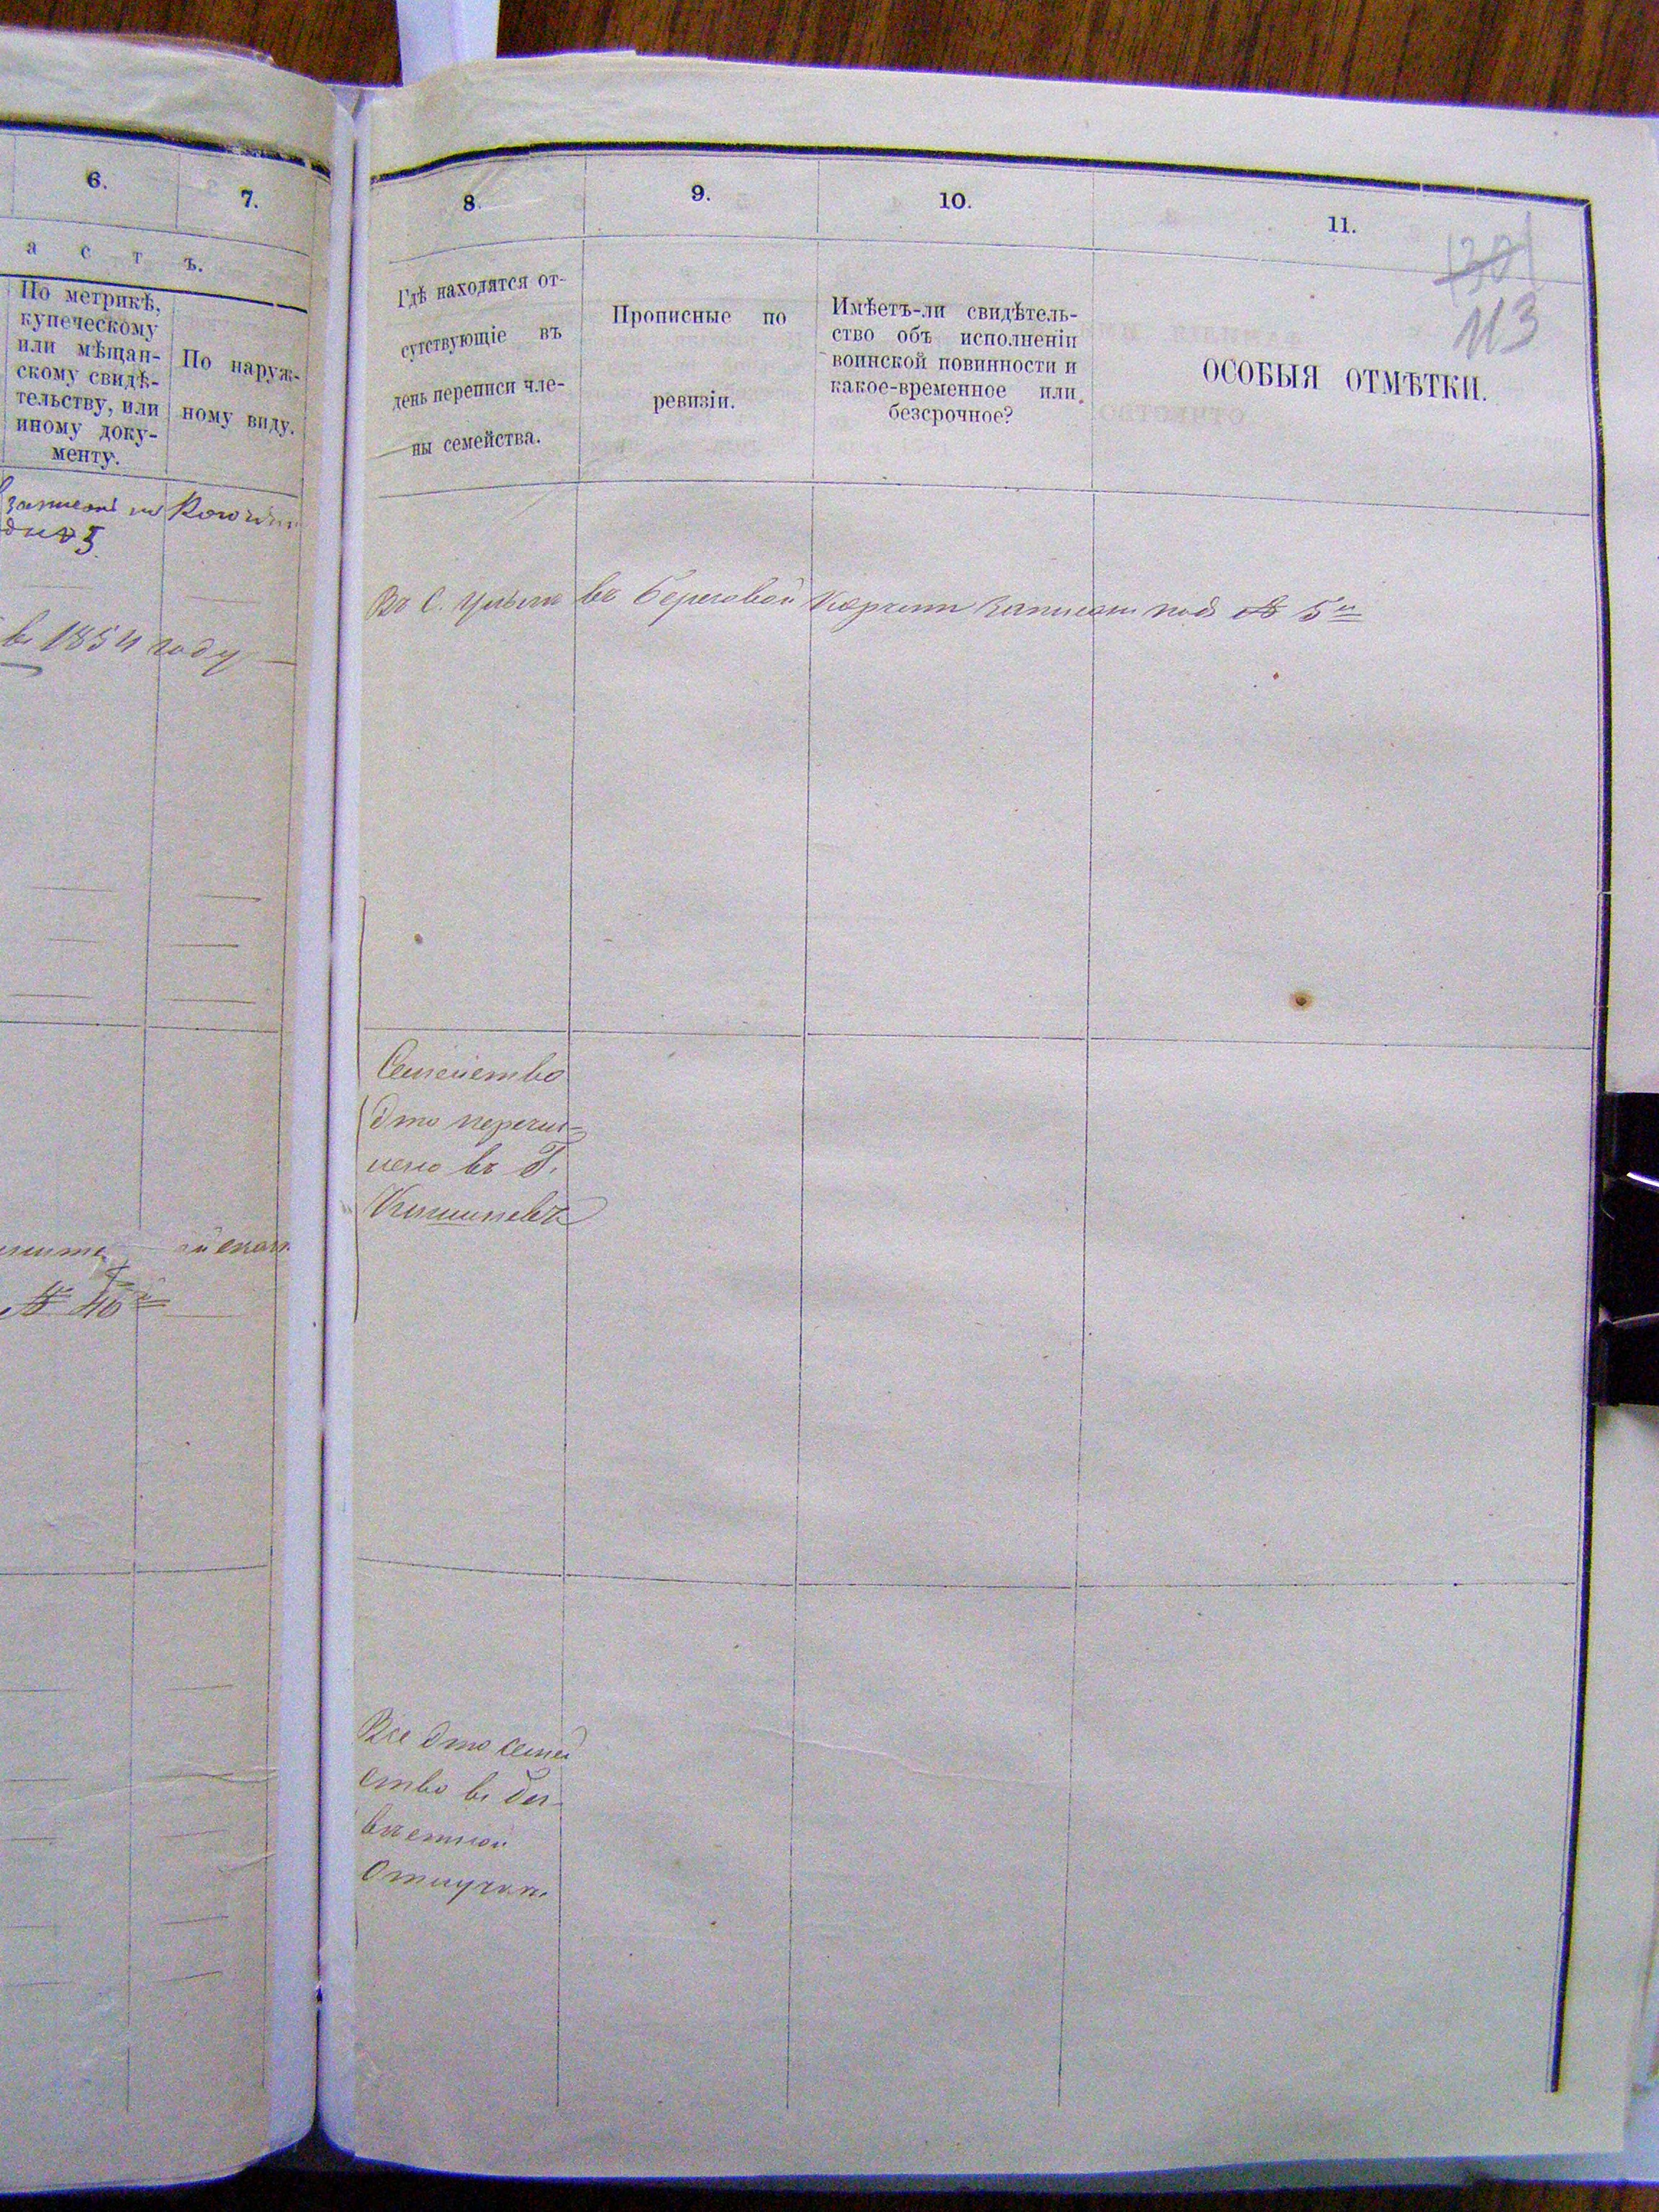 6.
7.
а с т ъ.
По метрикѣ,
купеческому
или мѣщан-
скому свидѣ-
тельству, или
иному доку-
менту.
По наруж-
ному виду.
въ 1854 году
№ 46
8.
9.
10.
11.
130
113
Гдѣ находятся от-
сутствующіе въ
день переписи чле-
ны семейства.
Прописные по
ревизіи.
Имѣетъ-ли свидѣтель-
ство объ исполненіи
воинской повинности и
какое-временное или
безсрочное?
ОСОБЫЯ ОТМѢТКИ.
Въ С. въ береговой записан подъ № 5й
Семейство
это перечис-
лено въ Г.
Кишиневъ
Все это семей
ство въ без-
вѣстной
Отлучки